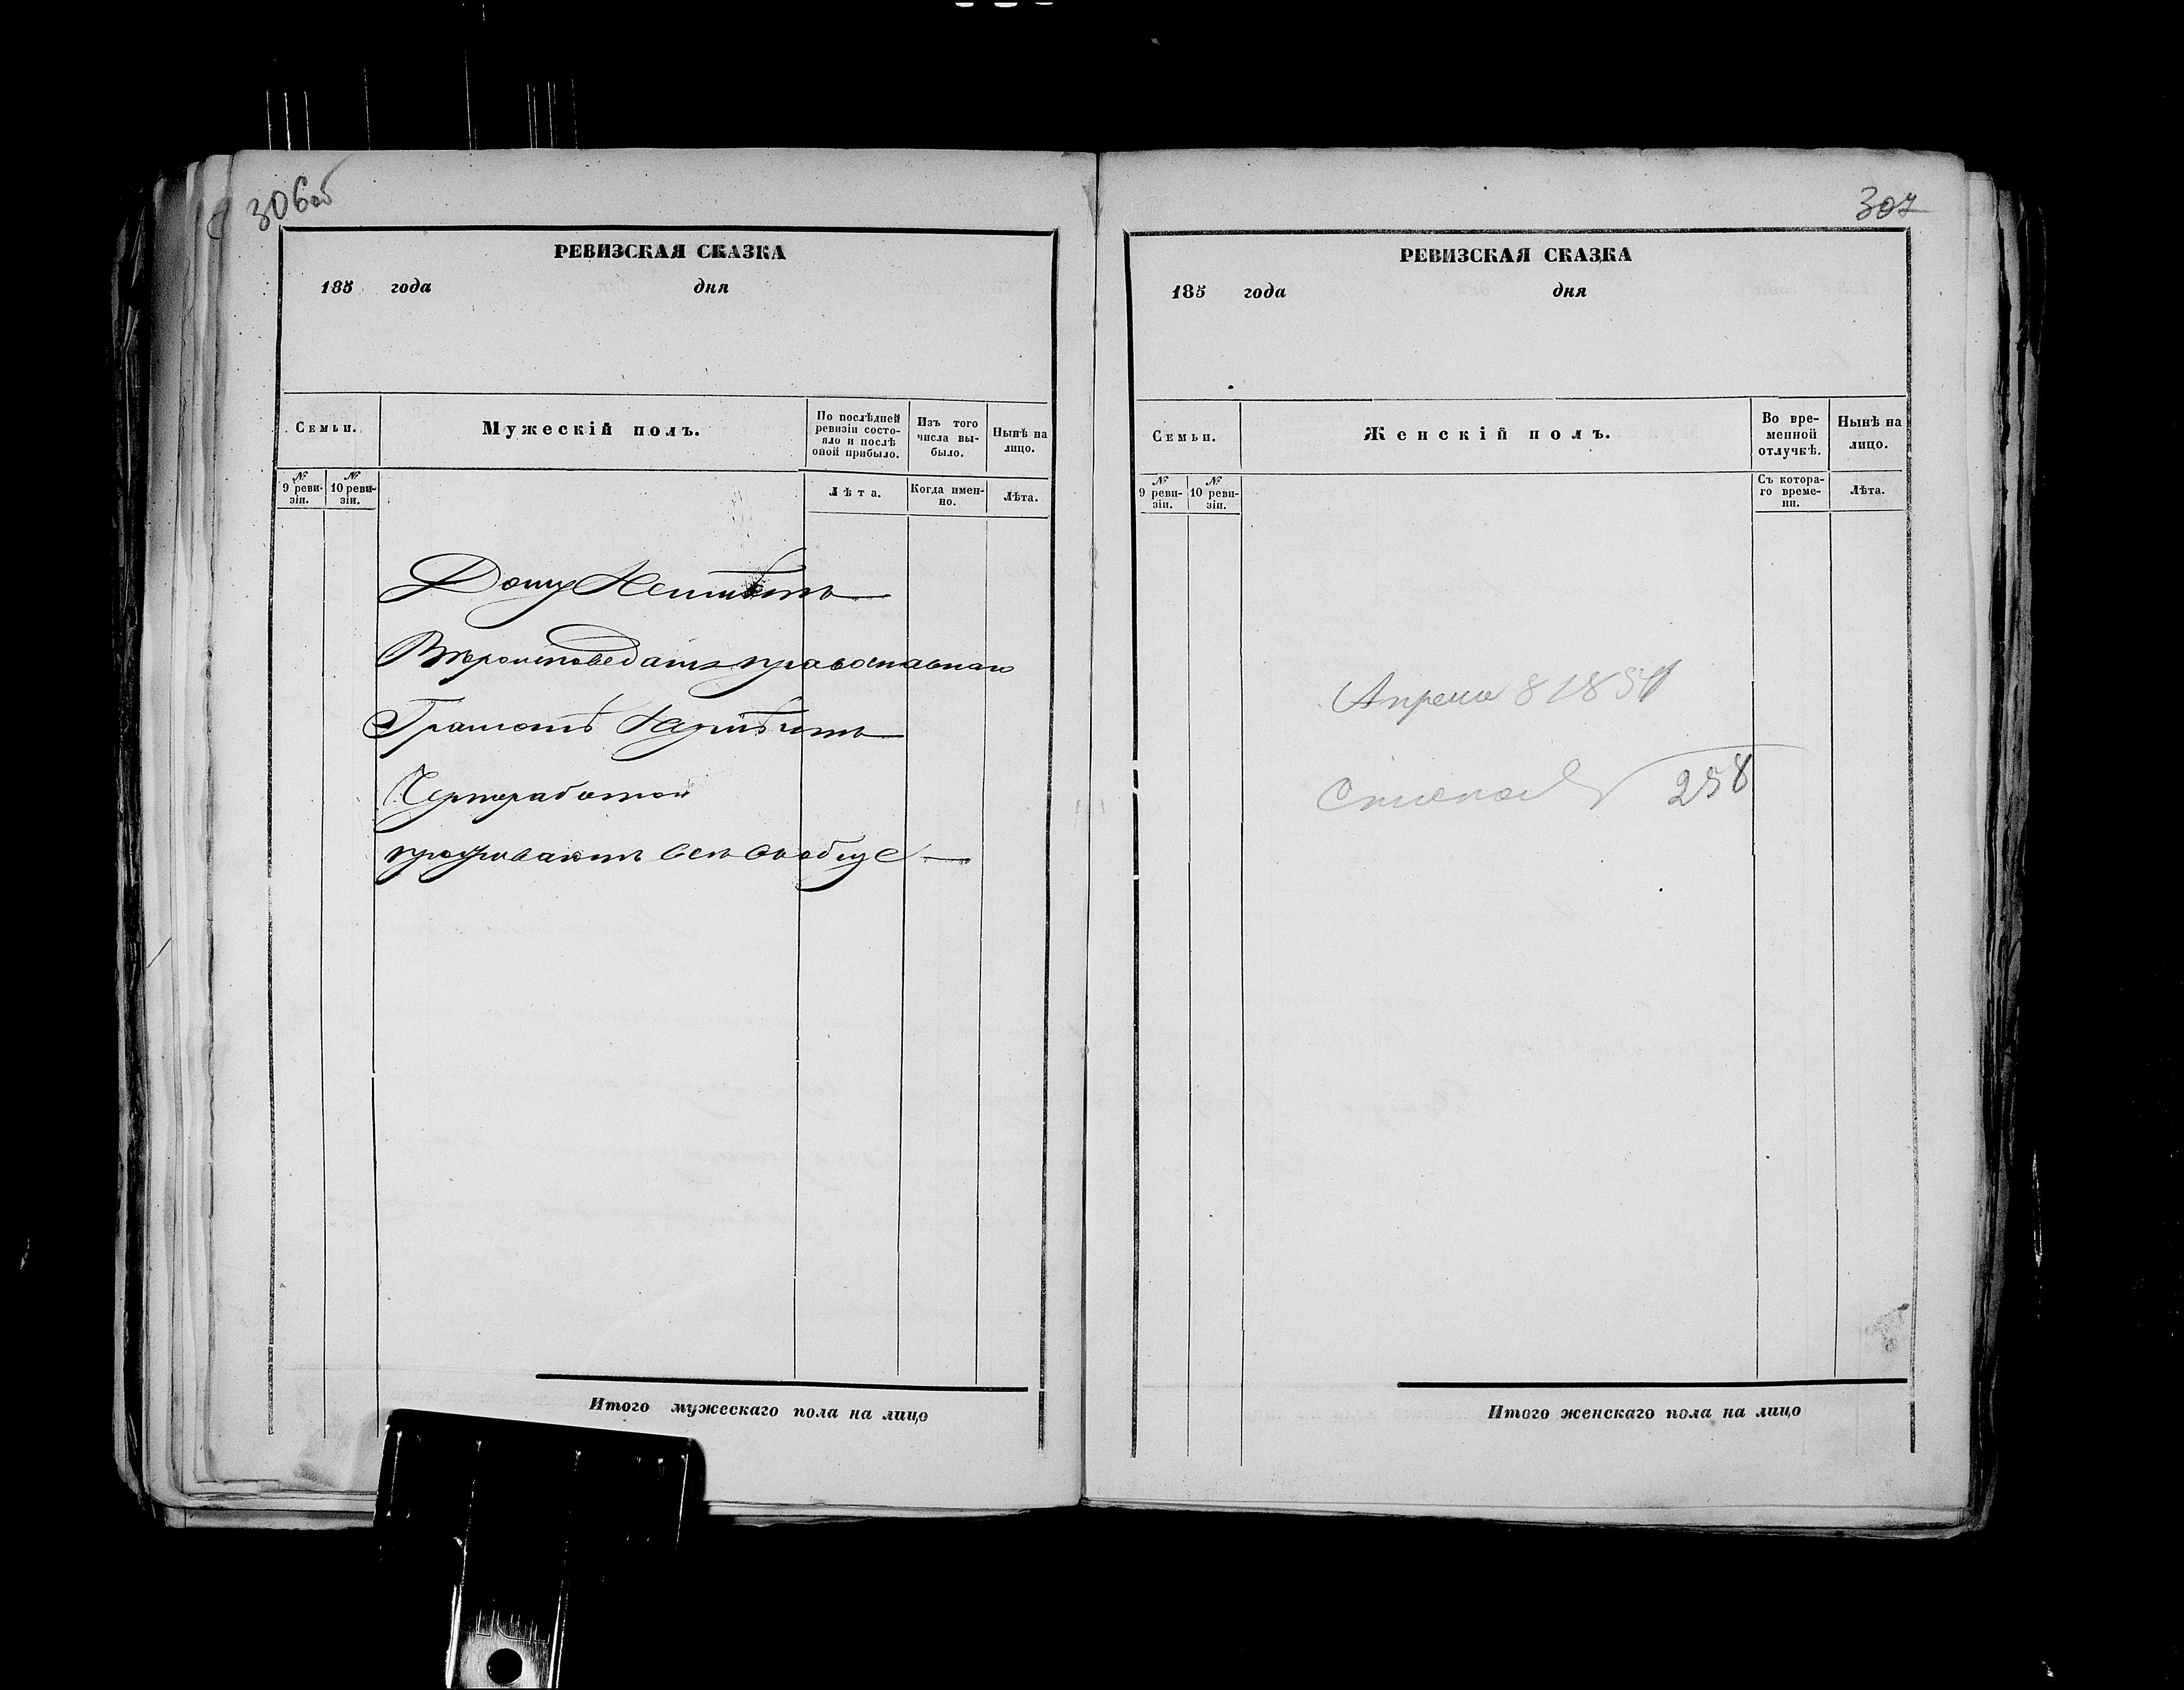 306об
РЕВИЗСКАЯ СКАЗКА
185 года дня
Семьи.
Мужескій полъ.
По послѣдней ревизіи состояло и послѣ оной прибыло.
Изъ того числа выбыло.
Нынѣ на лицо.
№ 9 ревизіи.
№ 10 ревизіи.
Лѣта.
Когда именно.
Лѣта.
Дому
православнаго
Грамотѣ
Черноработой
проживаютъ всѣ вообще
Итого мужескаго пола на лицо
307
РЕВИЗСКАЯ СКАЗКА
185 года дня
Семьи.
Женскій полъ.
Во временной отлучкѣ.
Нынѣ на лицо.
№ 9 ревизіи.
№ 10 ревизіи.
Съ котораго времени.
Лѣта.
Апреля 8 185
258
Итого женскаго пола на лицо